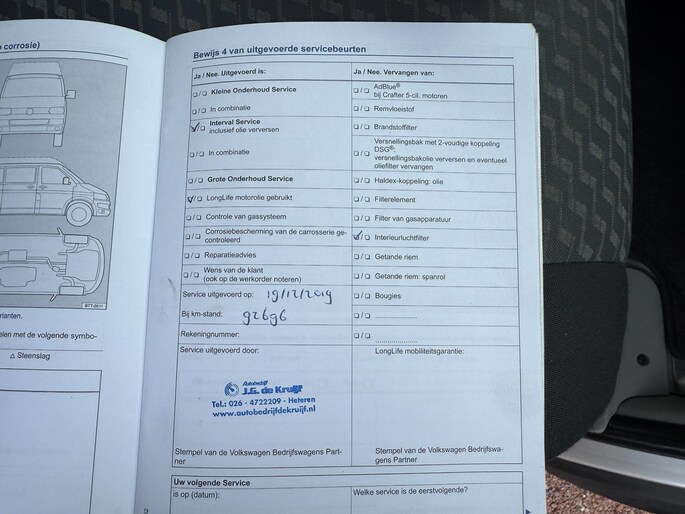 corrosie)
BTT-0511
rianten.
elen met de volgende symbo-
△ Steenslag
Bewijs 4 van uitgevoerde servicebeurten
Ja / Nee. Uitgevoerd is:
Ja / Nee. Vervangen van:
❏/❏ Kleine Onderhoud Service
❏/❏ AdBlue®
bij Crafter 5-cil. motoren
❏/❏ In combinatie
❏/❏ Remvloeistof
❏/❏ Interval Service
inclusief olie verversen
❏/❏ Brandstoffilter
❏/❏ In combinatie
❏/❏ Versnellingsbak met 2-voudige koppeling
DSG®:
versnellingsbakolie verversen en eventueel
oliefilter vervangen
❏/❏ Grote Onderhoud Service
❏/❏ Haldex-koppeling: olie
❏/❏ LongLife motorolie gebruikt
❏/❏ Filterelement
❏/❏ Controle van gassysteem
❏/❏ Filter van gasapparatuur
❏/❏ Corrosiebescherming van de carrosserie ge-
controleerd
❏/❏ Interieurluchtfilter
❏/❏ Reparatieadvies
❏/❏ Getande riem
❏/❏ Wens van de klant
(ook op de werkorder noteren)
❏/❏ Getande riem: spanrol
Service uitgevoerd op: 19/12/2019
❏/❏ Bougies
Bij km-stand: 92696
❏/❏ ....................
Rekeningnummer:
❏/❏ ....................
Service uitgevoerd door:
LongLife mobiliteitsgarantie:
Autobedrijf
J.G. de Kruijf
Tel.: 026 - 4722209 - Heteren
www.autobedrijfdekruijf.nl
Stempel van de Volkswagen Bedrijfswagens Part-
ner
Stempel van de Volkswagen Bedrijfswa-
gens Partner
Uw volgende Service
is op (datum):
Welke service is de eerstvolgende?